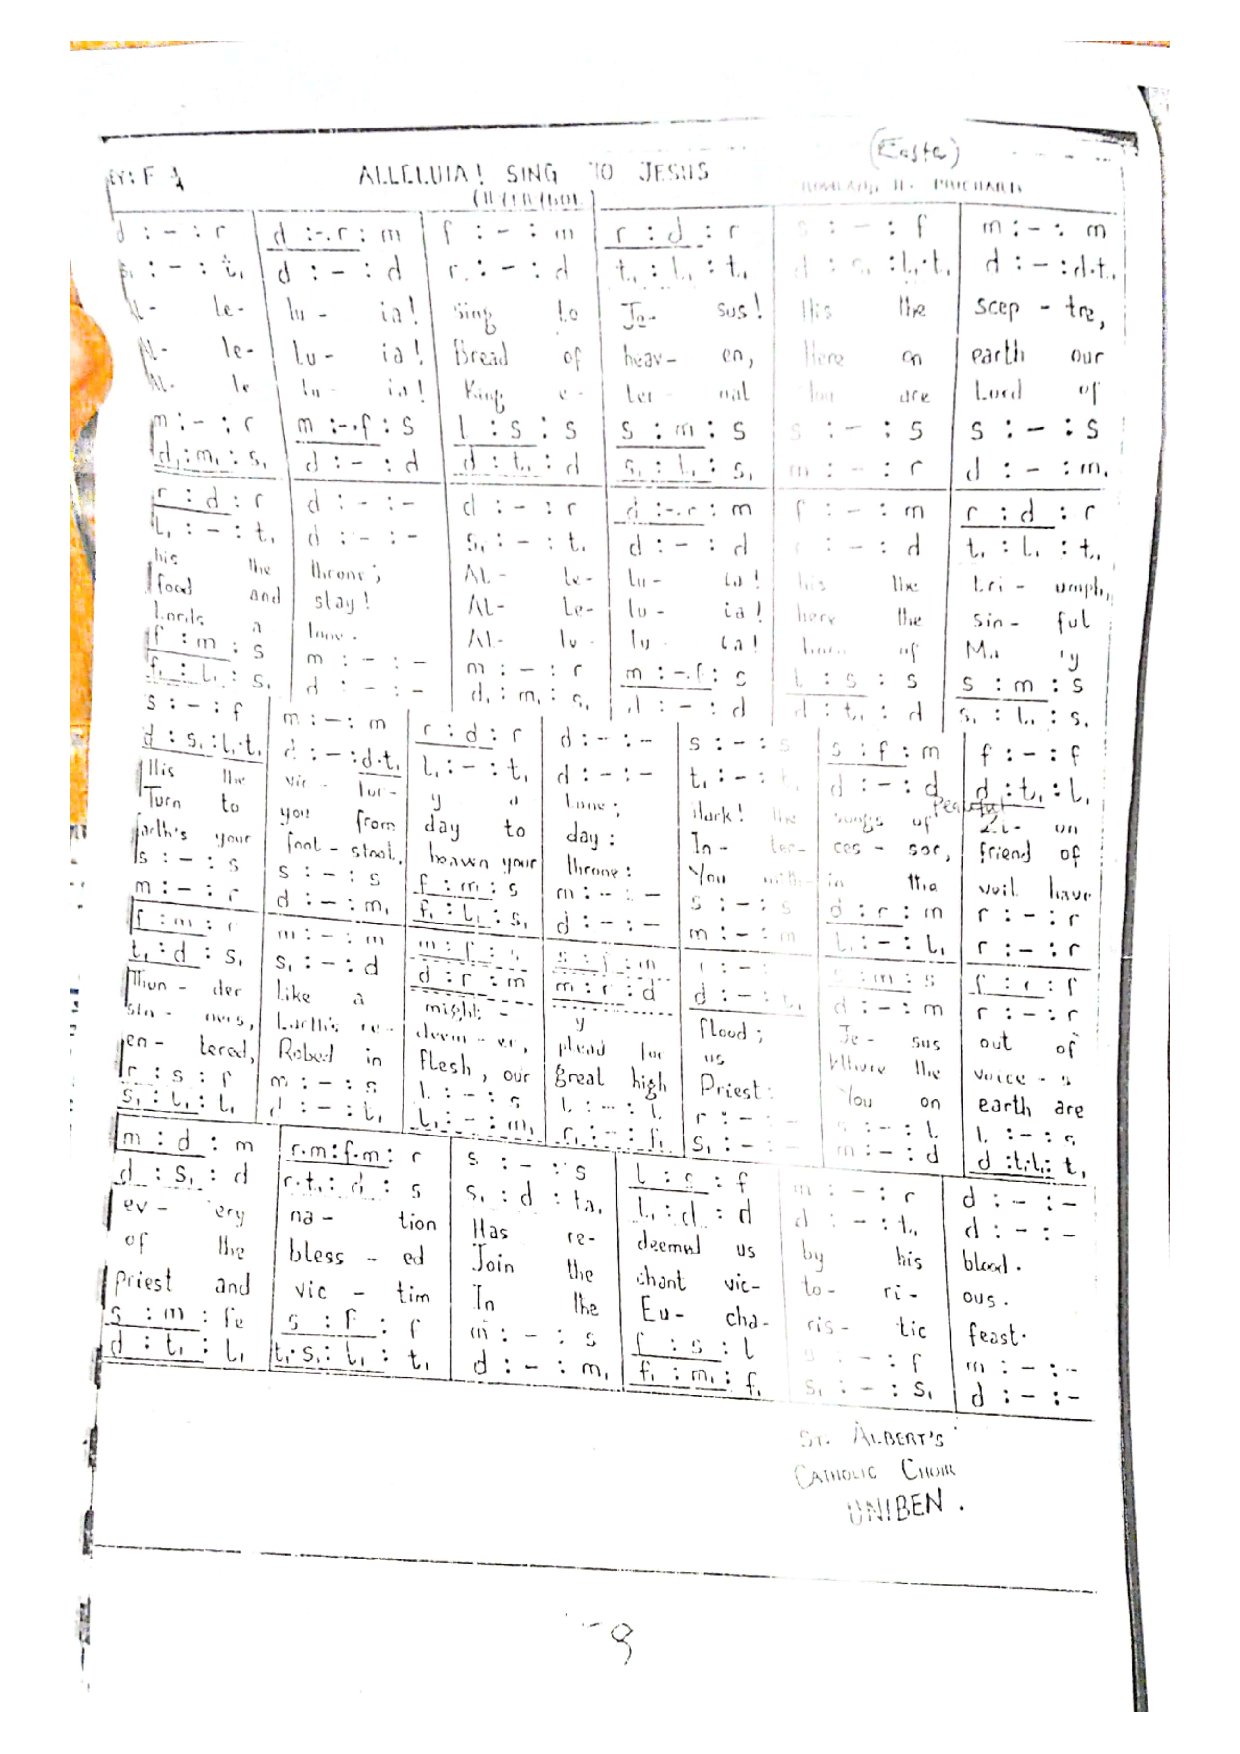 (Easter)
KEY: F ALLELUIA! SING TO JESUS
(HYFRYDOL) ROWLAND H. PRICHARD
d : - : r | d :-.r : m | f : - : m | r : d : r | s : - : f | m : - : m
s, : - : t, | d : - : d | r : - : d | t, : l, : t, | d : s, : l,.t, | d : - : d.t,
Al- le- | lu- ia! | Sing to | Je- sus! | His the | scep - tre,
Al- le- | lu- ia! | Bread of | heav- en, | Here on | earth our
Al- le | lu- ia! | King e- | ter- nal | You are | Lord of
m : - : r | m :-.f : s | l : s : s | s : m : s | s : - : s | s : - : s
d, : m, : s, | d : - : d | d : t, : d | s, : l, : s, | m : - : r | d : - : m,
r : d : r | d : - : - | d : - : r | d :-.r : m | f : - : m | r : d : r
l, : - : t, | d : - : - | s, : - : t, | d : - : d | : - : d | t, : l, : t,
his the | throne; | Al- le- | lu- ia! | his the | tri - umph,
food and | stay! | Al- le- | lu- ia! | here the | sin - ful
Lords a | lone. | Al- lu- | lu- ia! | born of | Ma y
f : m : s | m : - : - | m : - : r | m :-.f : s | l : s : s | s : m : s
f, : l, : s, | d : - : - | d, : m, : s, | d : - : d | d : t, : d | s, : l, : s,
s : - : f | m : - : m | r : d : r | d : - : - | s : - : s | s : f : m | f : - : f
d : s, : l,.t, | d : - : d.t, | l, : - : t, | d : - : - | t, : - : t, | d : - : d | d : t, : l,
His the | vic - tor- | y a | lone; | Hark! the | songs of | peaceful Zi- on
Turn to | you from | day to | day: | In- ter- | ces - sor, | friend of
Earth's your | foot - stool, | heaven your | throne: | You with- | in the | veil have
s : - : s | s : - : s | f : m : s | m : - : - | s : - : s | d : r : m | r : - : r
m : - : r | d : - : m, | f, : l, : s, | d : - : - | m : - : m | l, : - : l, | r : - : r
f : m : r | m : - : m | m : f : s | s : f : m | r : - : | s : m : s | f : r : f
t, : d : s, | s, : - : d | d : r : m | m : r : d | d : - : t, | d : - : m | r : - : r
Thun - der | like a | might - | y | flood; | Je - sus | out of
sin - ners, | Earth's re- | deem - er, | plead for | us | Where the | voice - s
en - tered, | Robed in | flesh, our | great high | Priest: | You on | earth are
r : s : f | m : - : s | l : - : s | l : - : l | r : - : - | s : - : l | l : - : s
s, : l, : l, | d : - : t, | l, : - : m, | r, : - : f, | s, : - : - | m : - : d | d :t,.l,: t,
m : d : m | r.m: f.m : r | s : - : s | l : s : f | m : - : r | d : - : -
d : s, : d | r.t, : d : s | s, : d : ta, | l, : d : d | d : - : t, | d : - : -
ev - ery | na - tion | Has re- | deemed us | by his | blood.
of the | bless - ed | Join the | chant vic- | to- ri- | ous.
priest and | vic - tim | In the | Eu - cha- | ris- tic | feast.
s : m : fe | s : f : f | m : - : s | f : s : l | s : - : f | m : - : -
d : t, : l, | t,.s, : l, : t, | d : - : m, | f, : m, : f, | s, : - : s, | d : - : -
ST. ALBERT'S
CATHOLIC CHOIR
UNIBEN.